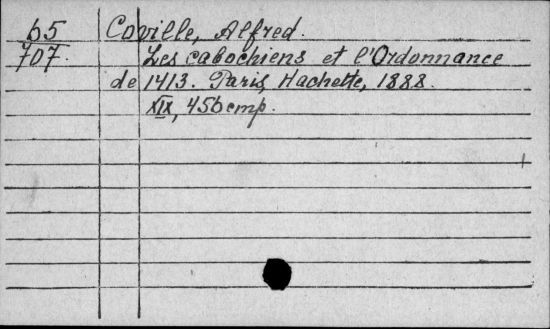 65 Coville, Alfred.
707. Les cabochiens et l'Ordonnance
de 1413. Paris, Hachette, 1888.
XIX, 456 стр.